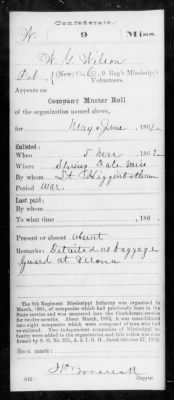 Confederate.
W 9 Miss.
W. G. Wilson
Pvt (New) Co. C, 9 Reg't Mississippi
Volunteers.
Appears on
Company Muster Roll
of the organization named above,
for May & June, 1862.
Enlisted:
When 5 Mar, 1862
Where
By whom Lt. Higginbotham
Period War.
Last paid:
By whom
To what time , 186 .
Present or absent Absent
Remarks: Detailed as baggage
guard at Verona
The 9th Regiment Mississippi Infantry was organized in
March, 1861, of companies which had previously been in the
State service and was mustered into the Confederate service
for twelve months. About March, 1862, it was consolidated
into eight companies which were composed of men who had
re-enlisted. Two independent companies of Mississippi Infantry
were added to the organization and this action was
confirmed by S. O. No. 251, A. & I. G. O., dated October 27, 1862.
Book mark:
(642) Copyist.